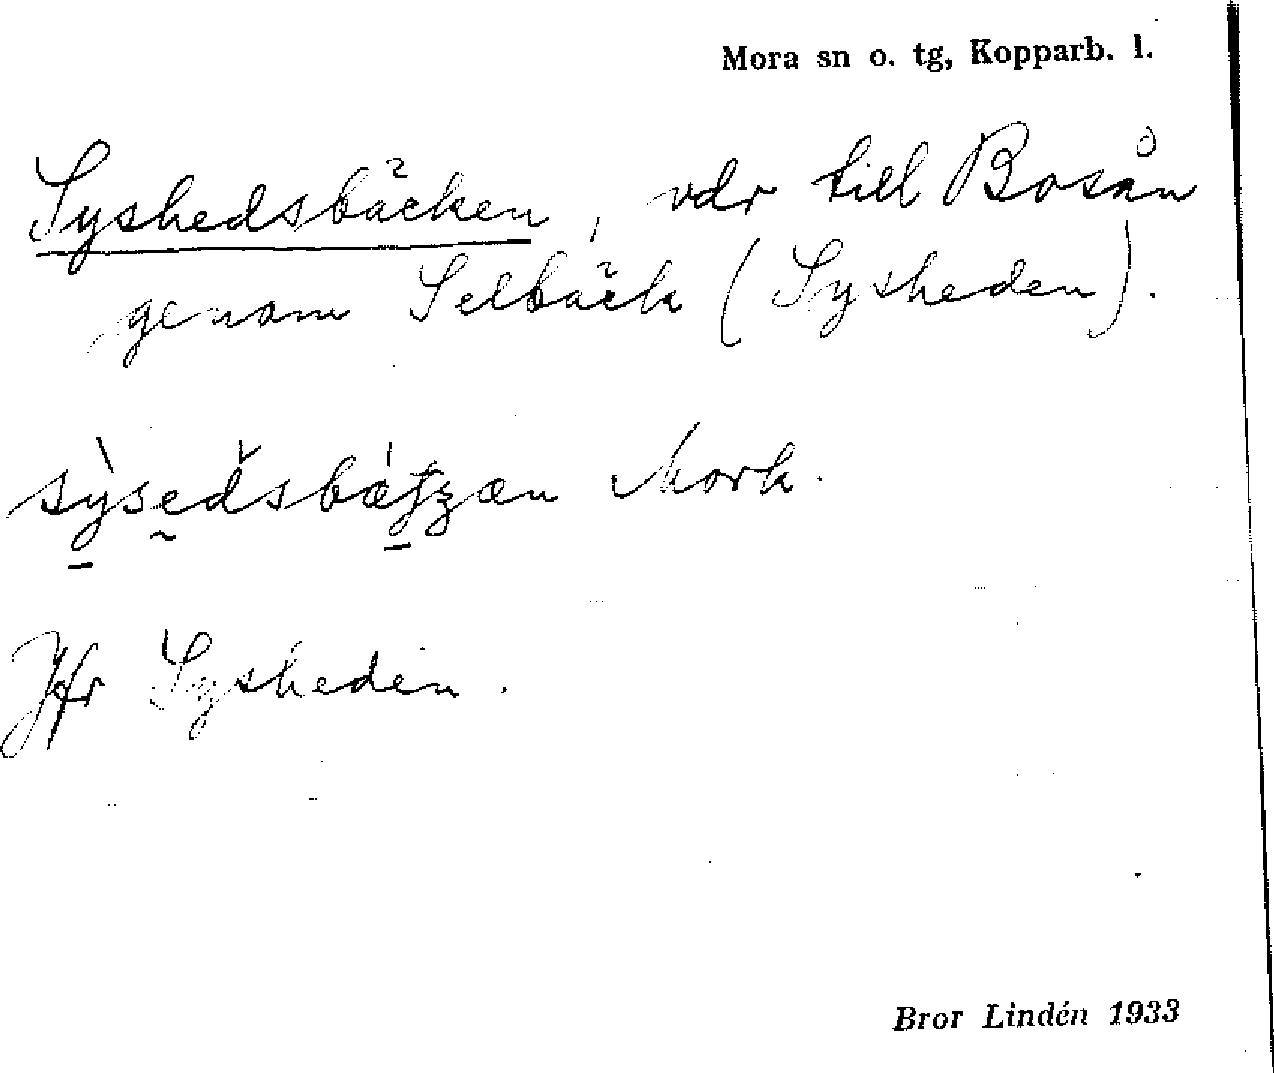 Mora sn o. tg, Kopparb. l.
Syshedsbäcken, vdr till Bosån
genom Selbäck (Sysheden).
Mork.
Jfr Sysheden.
Bror Lindén 1933